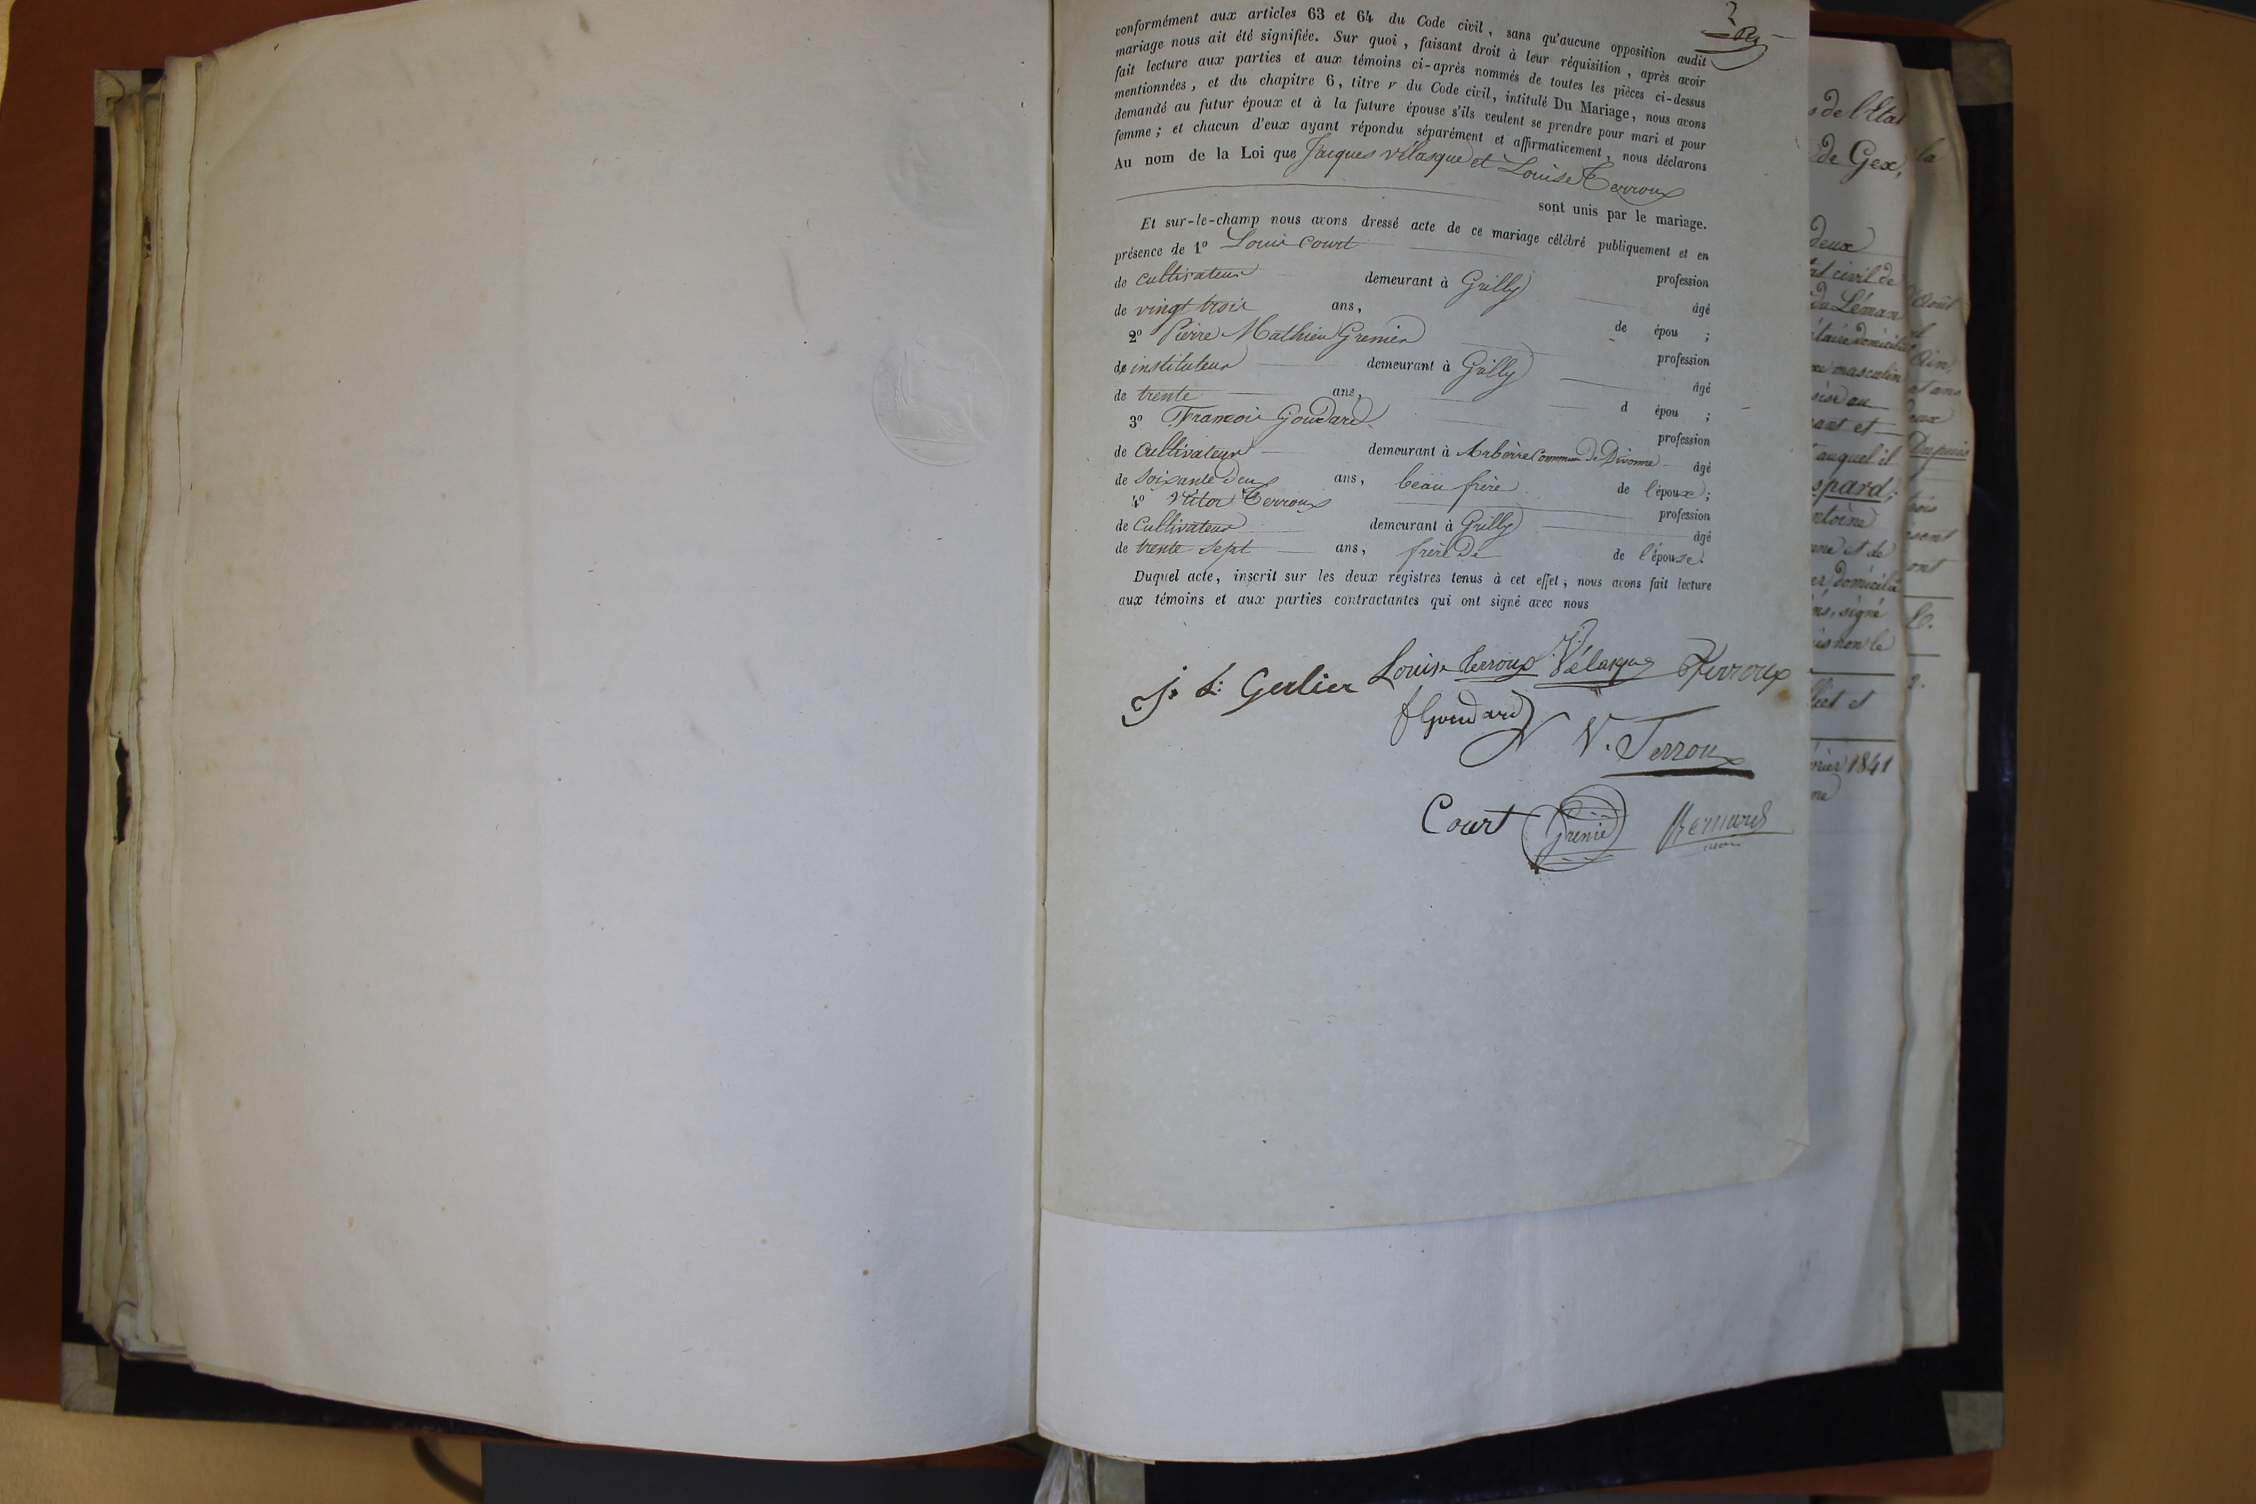 2
conformément aux articles 63 et 64 du Code civil, sans qu'aucune opposition audit
mariage nous ait été signifiée. Sur quoi, faisant droit à leur réquisition, après avoir
fait lecture aux parties et aux témoins ci-après nommés de toutes les pièces ci-dessus
mentionnées, et du chapitre 6, titre v du Code civil, intitulé Du Mariage, nous avons
demandé au futur époux et à la future épouse s'ils veulent se prendre pour mari et pour
femme; et chacun d'eux ayant répondu séparément et affirmativement, nous déclarons
Au nom de la Loi que Jacques Vélasque et Louise Terroux
sont unis par le mariage.
Et sur-le-champ nous avons dressé acte de ce mariage célébré publiquement et en
présence de 1º Louis Court
profession
de cultivateur demeurant à Grilly
âgé
de vingt trois ans,
de épou ;
2º Pierre Mathieu Grenier
profession
de instituteur demeurant à Grilly
âgé
de trente ans,
d épou ;
3º François Goudard
profession
de Cultivateur demeurant à Arbère Commune de Divonne âgé
de soixante deux ans, beau frère de l'époux;
4º Victor Terroux
profession
de Cultivateur demeurant à Grilly
âgé
de trente sept ans, frère de de l'épouse.
Duquel acte, inscrit sur les deux registres tenus à cet effet, nous avons fait lecture
aux témoins et aux parties contractantes qui ont signé avec nous
J. L. Gerlier Louise Terroux Vélasque Terroux
f Goudard V. Terroux
Court Grenier
s de l'Etat
de Gex,
deux
état civil de
du Léman
masculin
auquel il
domicilié
signé
1841
la
Août
Ain,